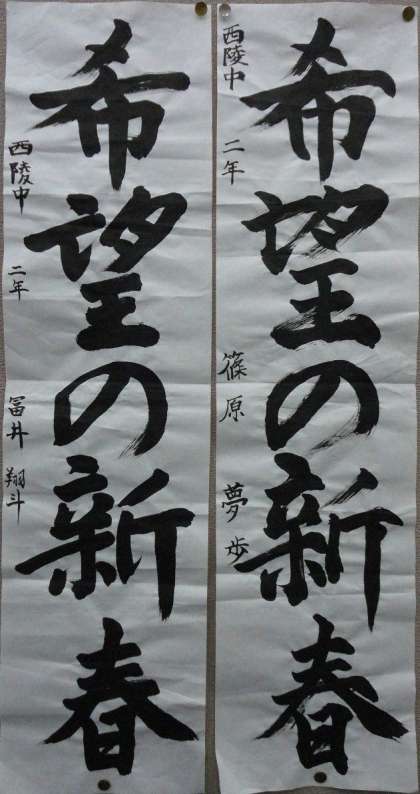 希望の新春
西陵中 二年 篠原 夢歩
希望の新春
西陵中 二年 冨井 翔斗